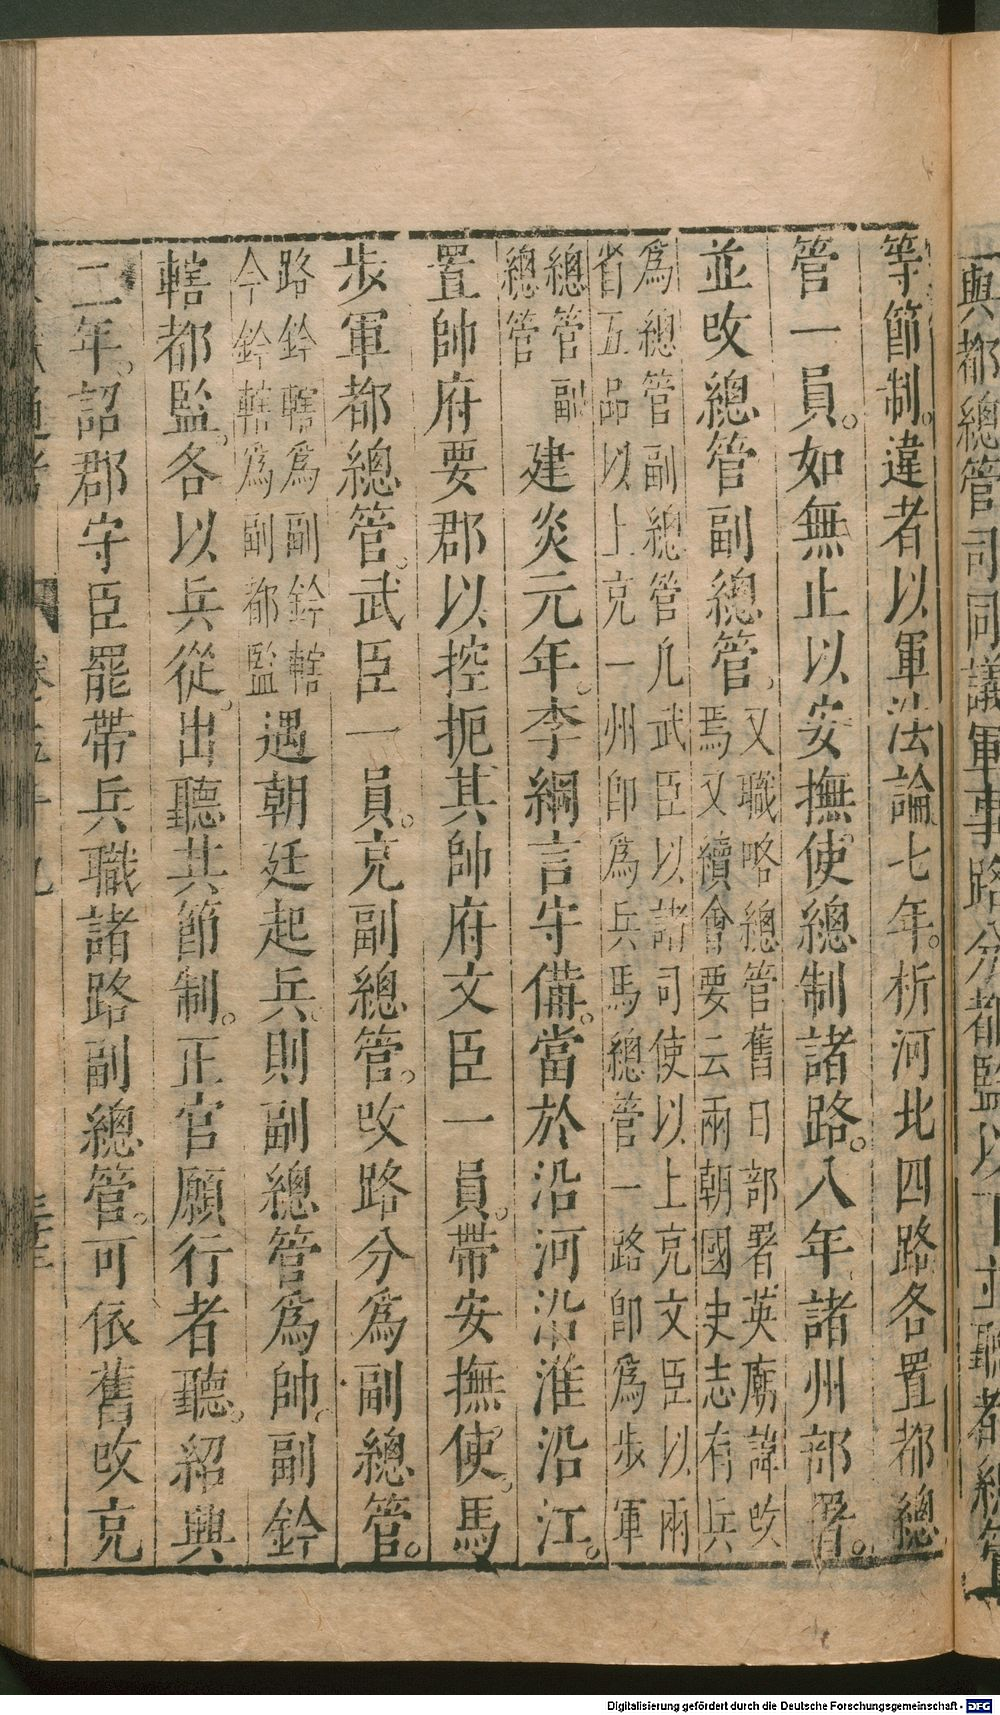 與都總管司同議軍事路分都監以下並聽都總管
等節制。違者以軍法論。七年。析河北四路各置都總
管一員。如無止以安撫使總制諸路。八年諸州部署。
並改總管副總管。
又職略總管舊日部署英廟諱改
焉又續會要云兩朝國史志有兵
為總管副總管凡武臣以諸司使以上充文臣以兩
省五品以上充一州卽為兵馬總管一路卽為步軍
總管副
總管
建炎元年。李綱言守備。當於沿河沿淮沿江。
置帥府要郡以控扼其帥府文臣一員。帶安撫使。馬
步軍都總管。武臣一員。充副總管。改路分為副總管。
路鈐轄為副鈐轄
今鈐轄為副都監
遇朝廷起兵。則副總管為帥。副鈐
轄都監。各以兵從。出聽其節制。正官願行者聽。紹興
二年。詔郡守臣罷帶兵職諸路副總管。可依舊改充
通考
Digitalisierung gefördert durch die Deutsche Forschungsgemeinschaft - DFG